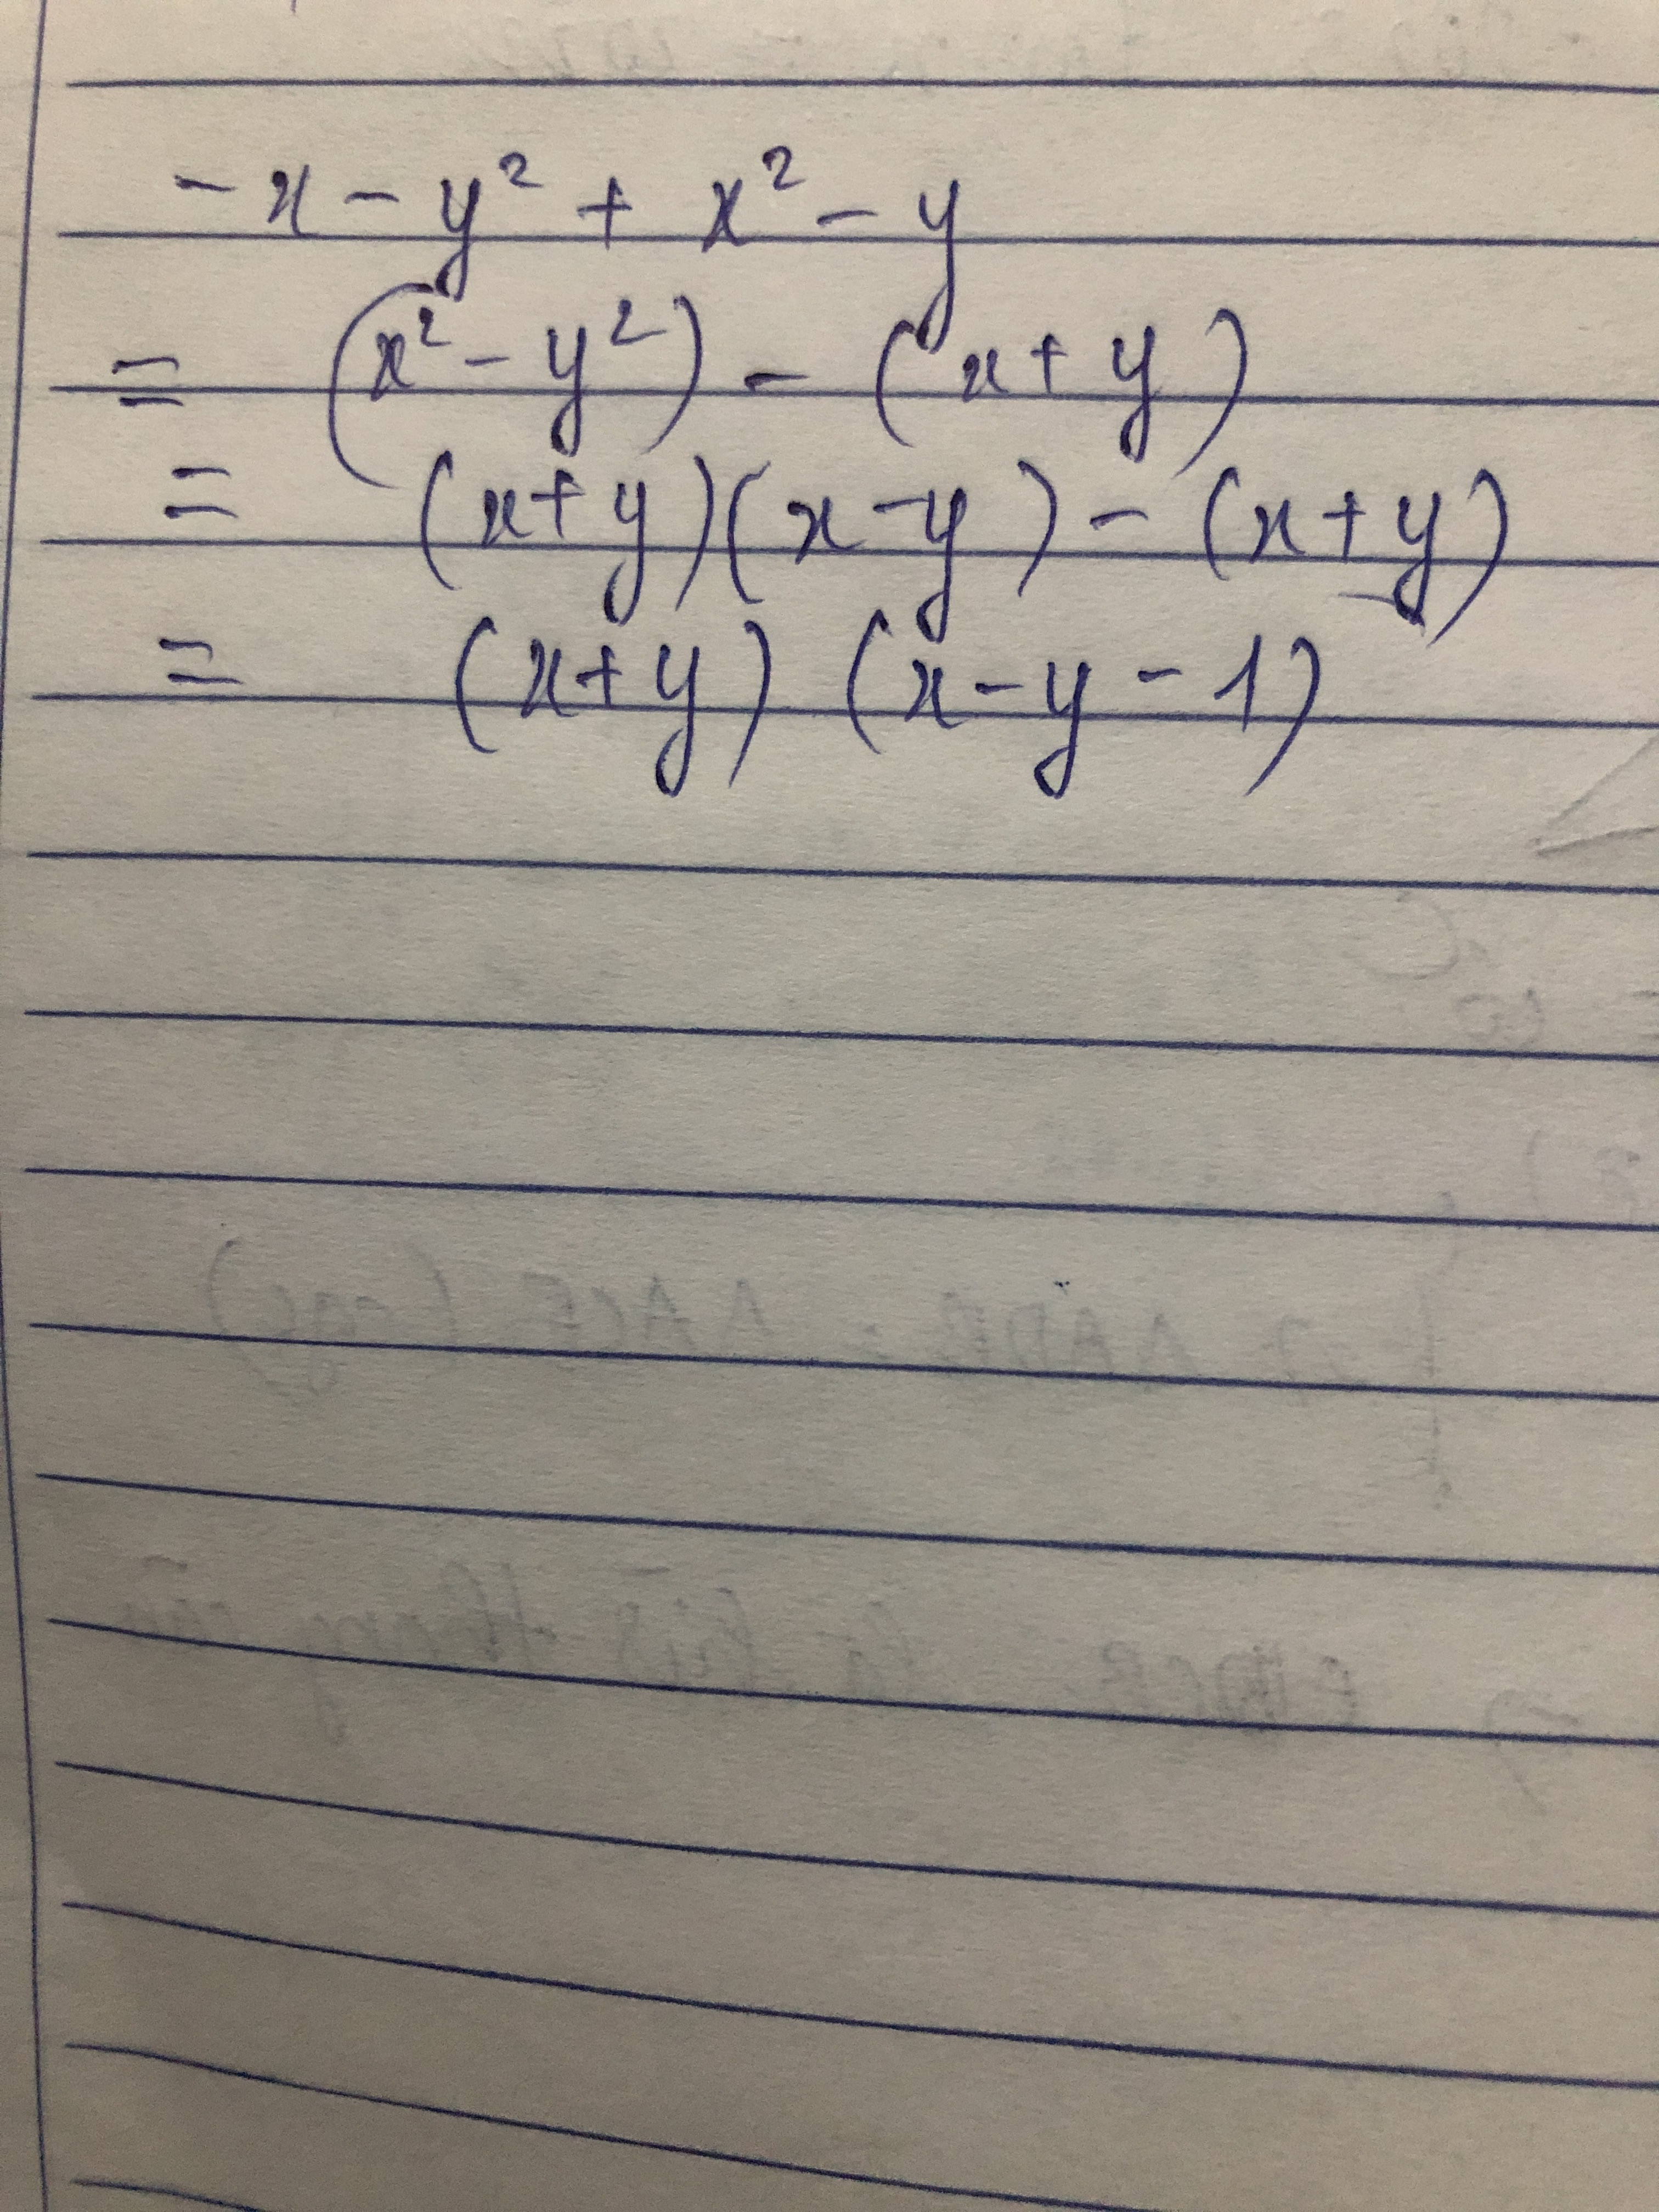 -x - y² + x² - y
= (x² - y²) - (x + y)
= (x+y)(x-y) - (x+y)
= (x+y) (x-y-1)